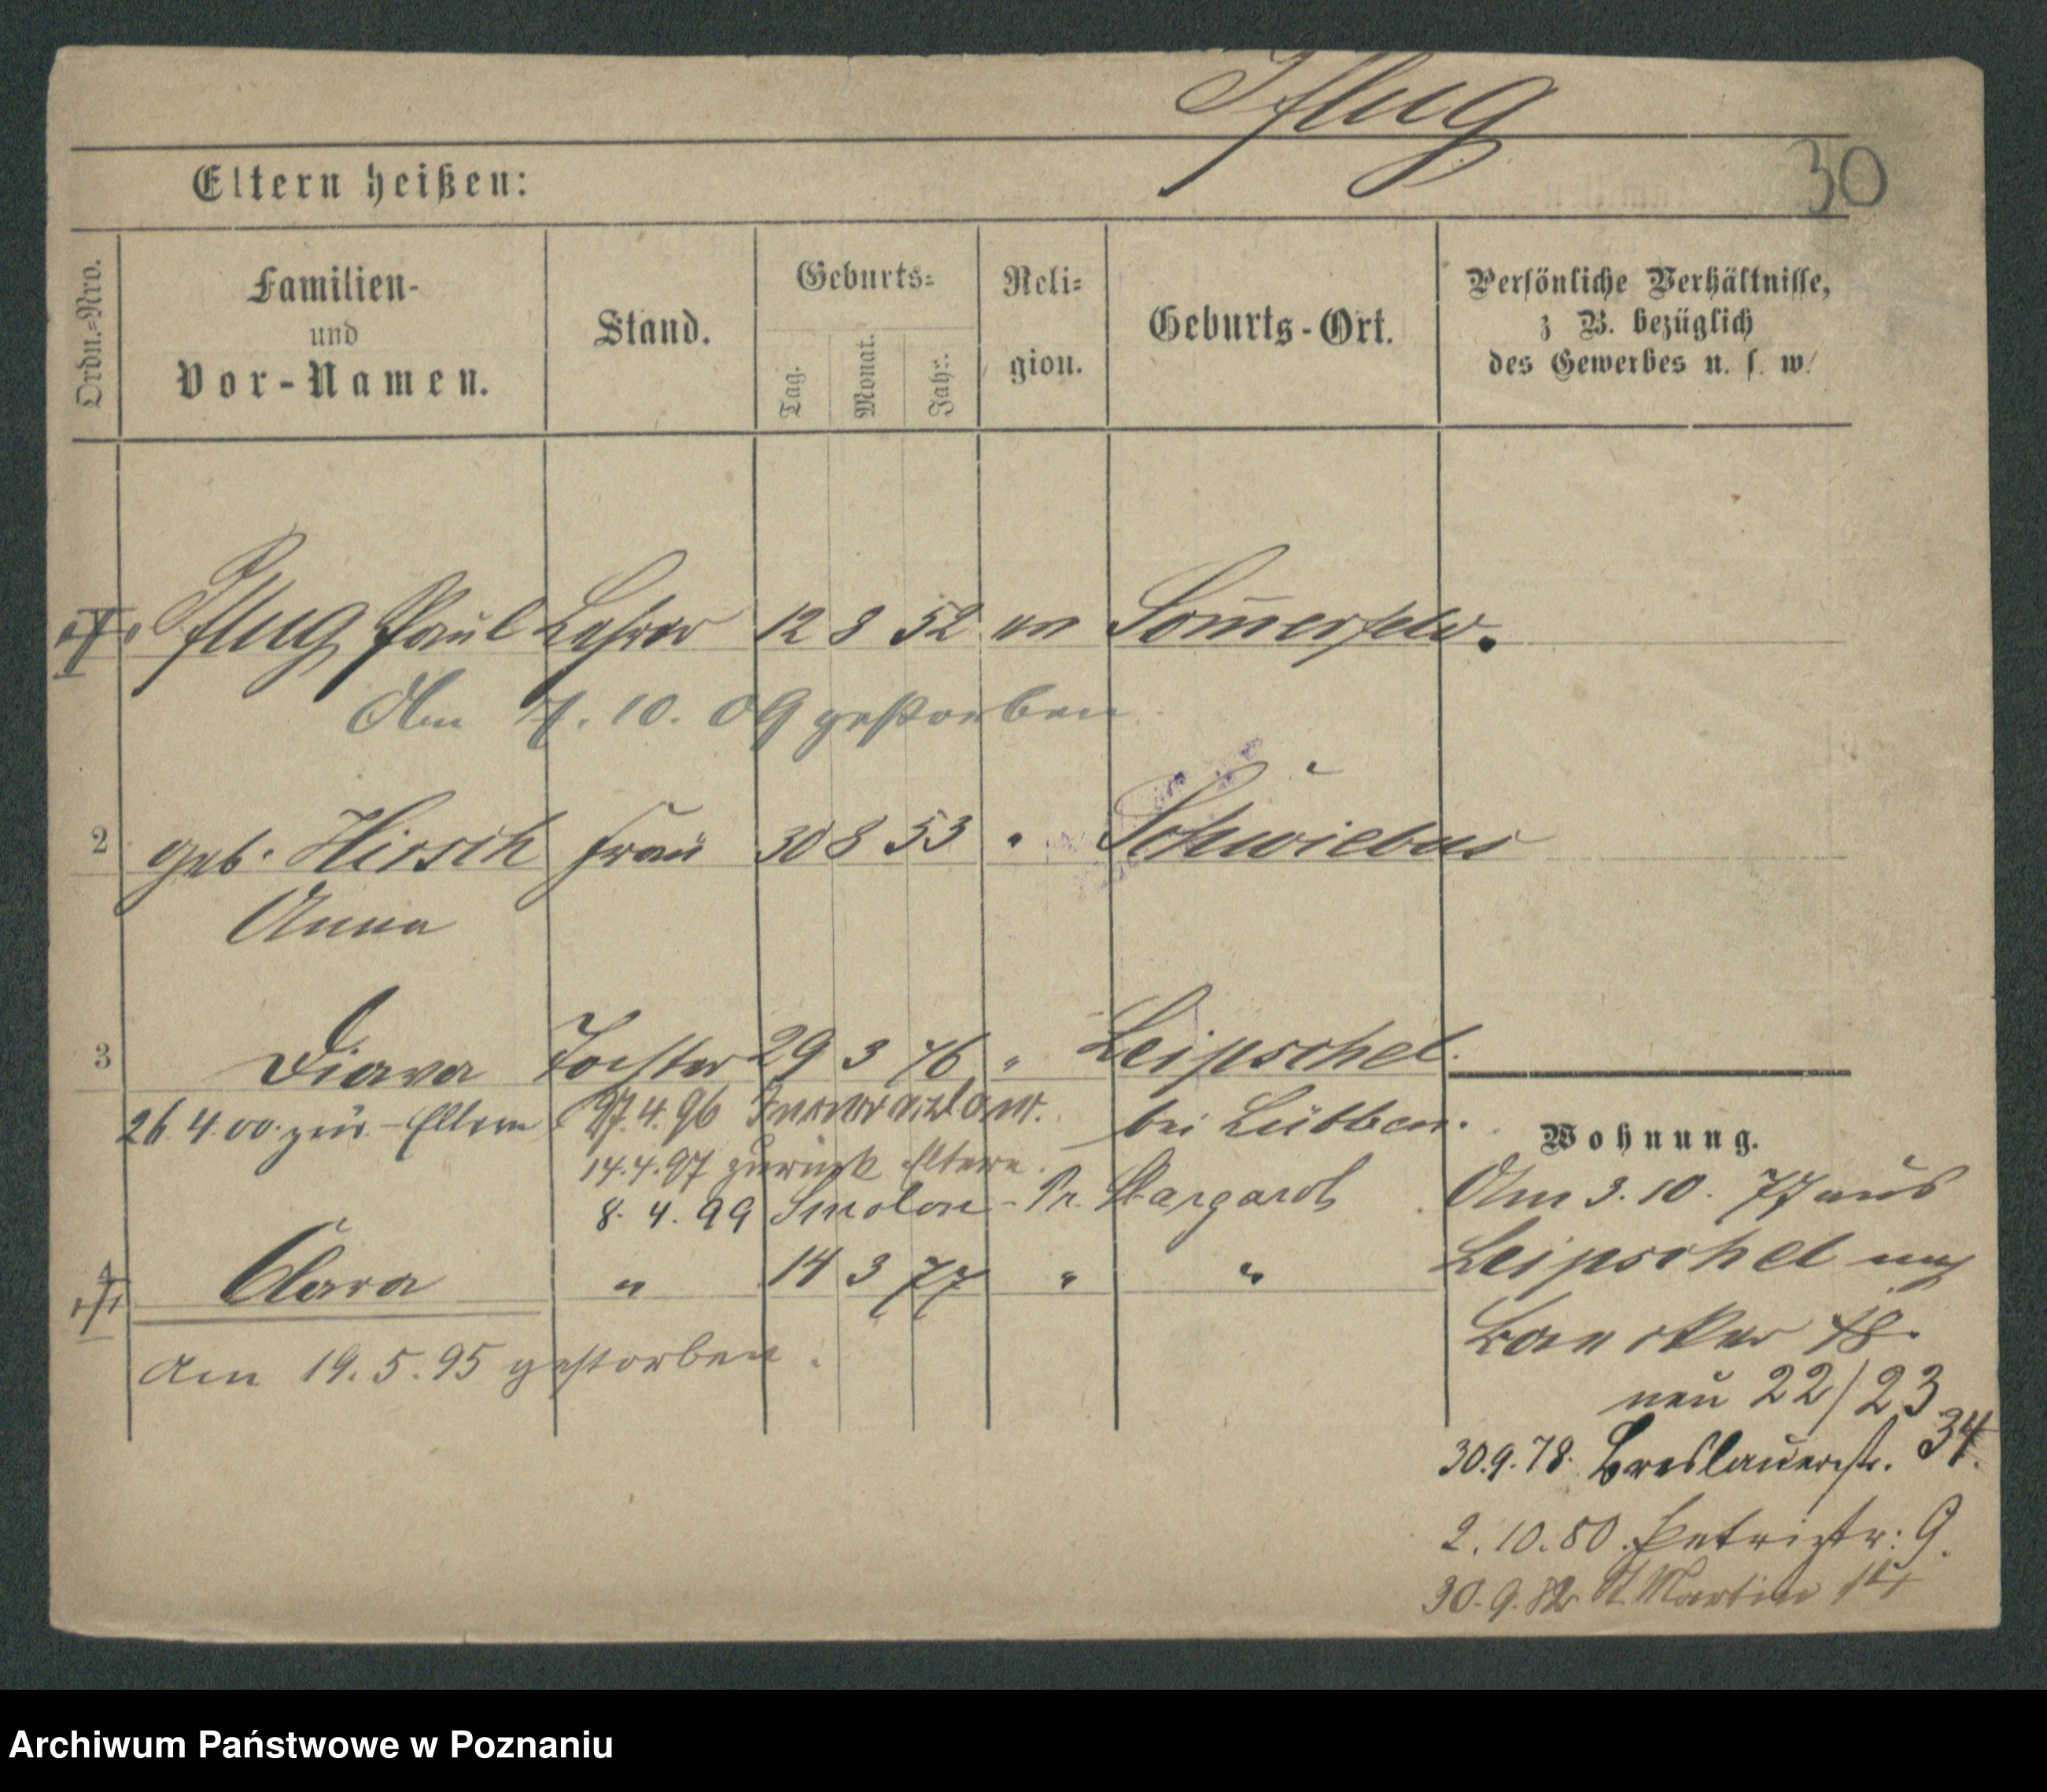 Pflug
30
Eltern heißen:
Ordn.=Nro.
Familien-
und
Vor-Namen.
Stand.
Geburts=
Tag.
Monat.
Jahr.
Reli=
gion.
Geburts-Ort.
Persönliche Verhältnisse,
z B. bezüglich
des Gewerbes u. s. w.
Pflug Paul Lehrer 12 8 52 ev Som̄erfeld.
Am 7. 10. 09 gestorben
2 geb. Hirsch Frau 30 8 53 " Schwiebus
Anna
3 Tochter 29 3 76 " Leipschel.
26. 4. 00. zur. Eltern 27. 4. 96 Inowrazlaw. bei Lübben.
14. 4. 97 zurück Eltern.
8. 4. 99 Smolon - Pr. Stargardt
Clara " 14 3 77 " "
Am 19. 5. 95 gestorben.
Wohnung.
Am 3. 10. 77 aus
Leipschel nach
18.
neu 22/23
30. 9. 78. Breslauerstr. 34.
2. 10. 80. Petristr: 9.
30. 9. 82 St. Martin 14
Archiwum Państwowe w Poznaniu